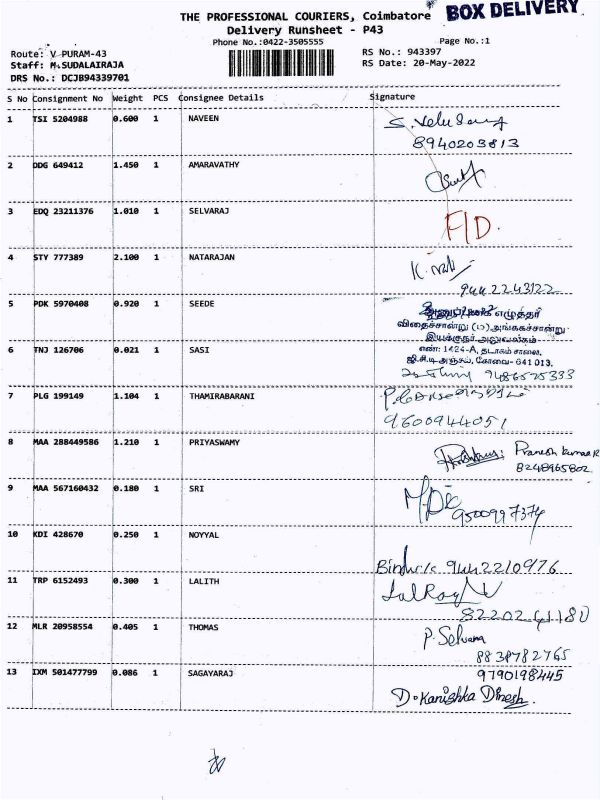 THE PROFESSIONAL COURIERS, Coimbatore
BOX DELIVERY
Delivery Runsheet - P43
Phone No.:0422-3505555
Page No.:1
Route: V PURAM-43
RS No.: 943397
Staff: M.SUDALAIRAJA
RS Date: 20-May-2022
DRS No.: DCJB94339701
S No Consignment No Weight PCS Consignee Details Signature
1 TSI 5204988 0.600 1 NAVEEN
8940203813
2 DDG 649412 1.450 1 AMARAVATHY
3 EDQ 23211376 1.010 1 SELVARAJ F/D.
4 STY 777389 2.100 1 NATARAJAN
9442243122
5 PDK 5970408 0.920 1 SEEDE
விதைச்சான்று (ம) அங்ககச்சான்று
இயக்குநர் அலுவலகம்
6 TNJ 126706 0.021 1 SASI
எண்: 1424-A, தடாகம் சாலை,
ஜி.சி.டி அஞ்சல், கோவை- 641 013.
9486525333
7 PLG 199149 1.104 1 THAMIRABARANI
9600944051
8 MAA 288449586 1.210 1 PRIYASWAMY
Pranesh Kumar R
8248965802
9 MAA 567160432 0.180 1 SRI
9500997374
10 KDI 428670 0.250 1 NOYYAL
9442210976
11 TRP 6152493 0.300 1 LALITH
82202 41180
12 MLR 20958554 0.405 1 THOMAS
P. Selvama
8838782765
13 IXM 501477799 0.086 1 SAGAYARAJ
9790198445
D. Kanishka Dinesh.